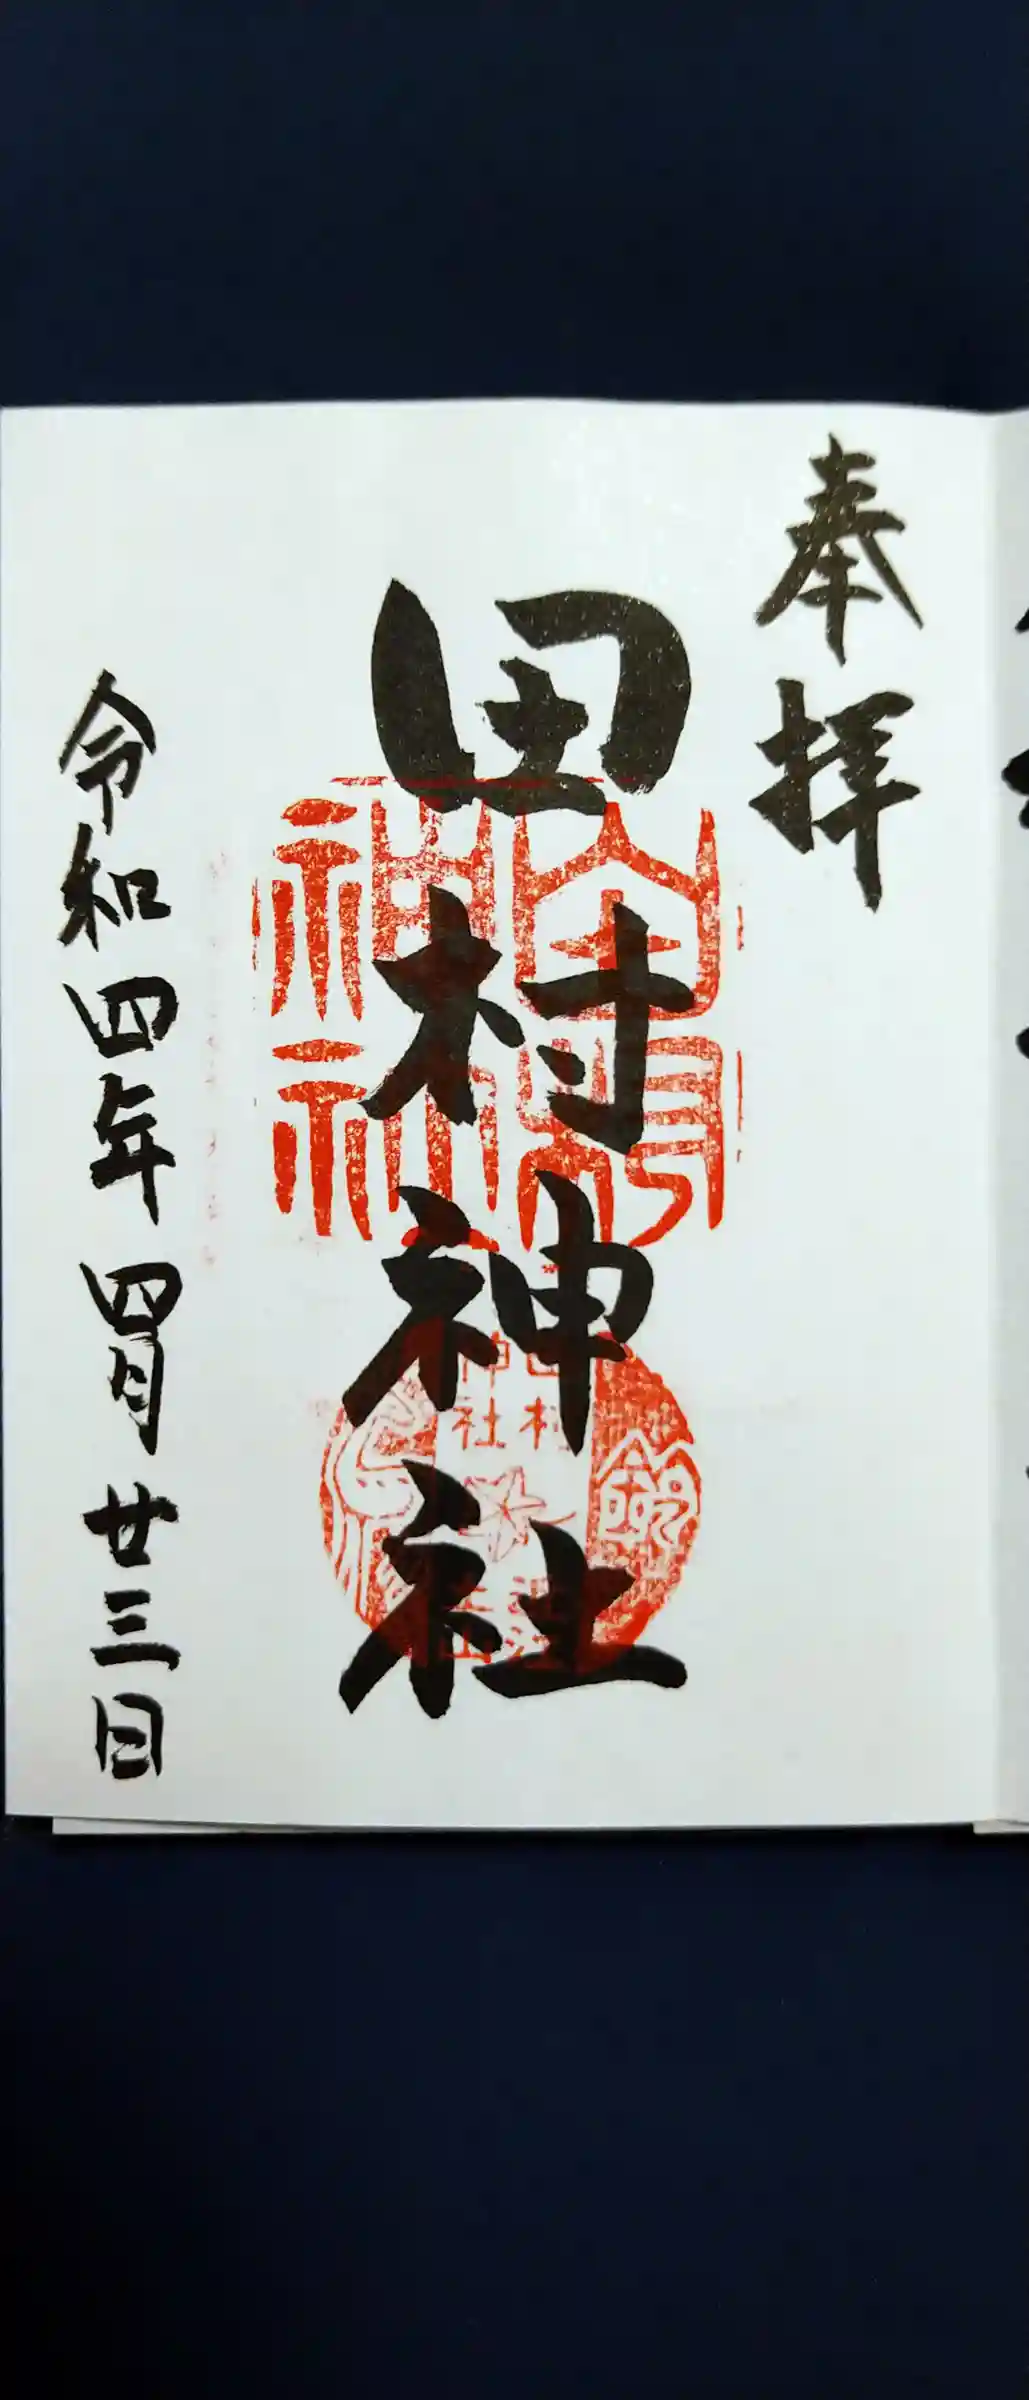 奉拝
田村神社
田村神社
田村
神社
令和四年四月廿三日